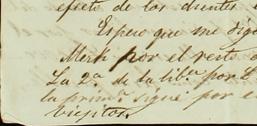 efecto de los dientes
Espero que me dig
Merk por el resto
La 2ª de la lib.ᵃ por
la prim.ᵃ sigue por e
viejitos.